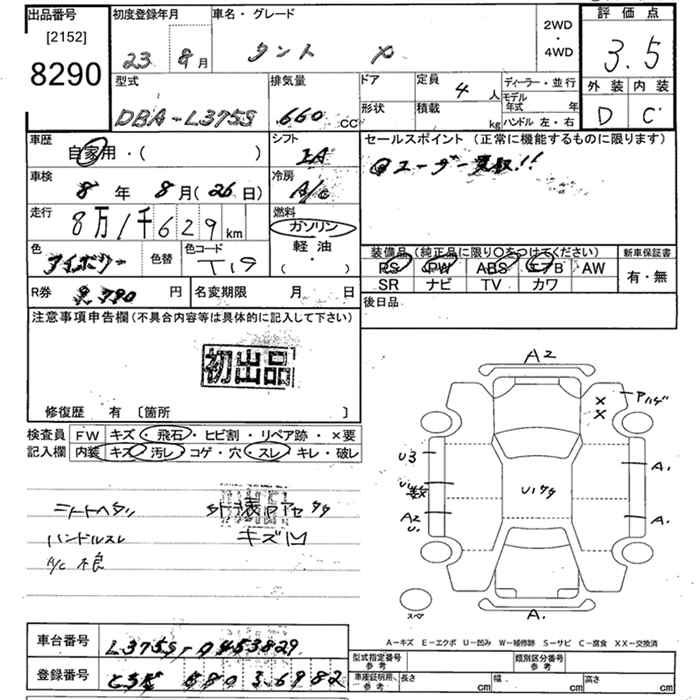 出品番号
[2152]
8290
初度登録年月
23 8月
車名・グレード
タント X
2WD
・
4WD
評価点
3.5
外装 内装
D C
型式
DBA-L375S
排気量
660 CC
ドア
形状
定員
4 人
積載
kg
ディーラー・並行
モデル年式 年
ハンドル 左・右
車歴
自家用・( )
シフト
IA
セールスポイント (正常に機能するものに限ります)
ユーザー買取!!
車検
8年 8月(26日)
冷房
A/C
走行
8万1千629km
燃料
ガソリン
軽油
( ・ )
色
アイボリー
色替
色コード
T19
装備品(純正品に限り○をつけてください)
PS PW ABS エアB AW
SR ナビ TV カワ
新車保証書
有・無
R券
円
名変期限 月 日
後日品
注意事項申告欄(不具合内容等は具体的に記入して下さい)
初出品
修復歴 有 〔箇所 〕
検査員
記入欄
FW キズ・飛石・ヒビ割・リペア跡・×要
内装 キズ・汚レ・コゲ・穴・スレ・キレ・破レ
シートヘタリ
ハンドルスレ
A/C 不良
キズ凹
A2
×
×
アハゲ
U3
U1
数
A2
U1
U1ワダ
A1
A1
A1
スペア
A-キズ E-エクボ U-凹み W-補修跡 S-サビ C-腐食 XX-交換済
車台番号
L375S-0453829
登録番号
580 3 6982
型式指定番号
参考
類別区分番号
参考
車庫証明用、
参考
長さ cm
幅 cm
高さ cm